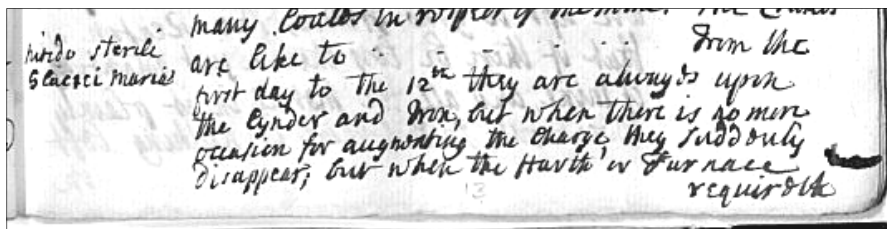 many Coales in respect of the mine. The
are like to - - - - - from the
first day to the 12th they are always upon
the Cynder and Iron, but when there is no more
occasion for augmenting the Charge, they suddenly
disappear; but when the Harth or Furnace
requireth
nido sterili
Glacici maris